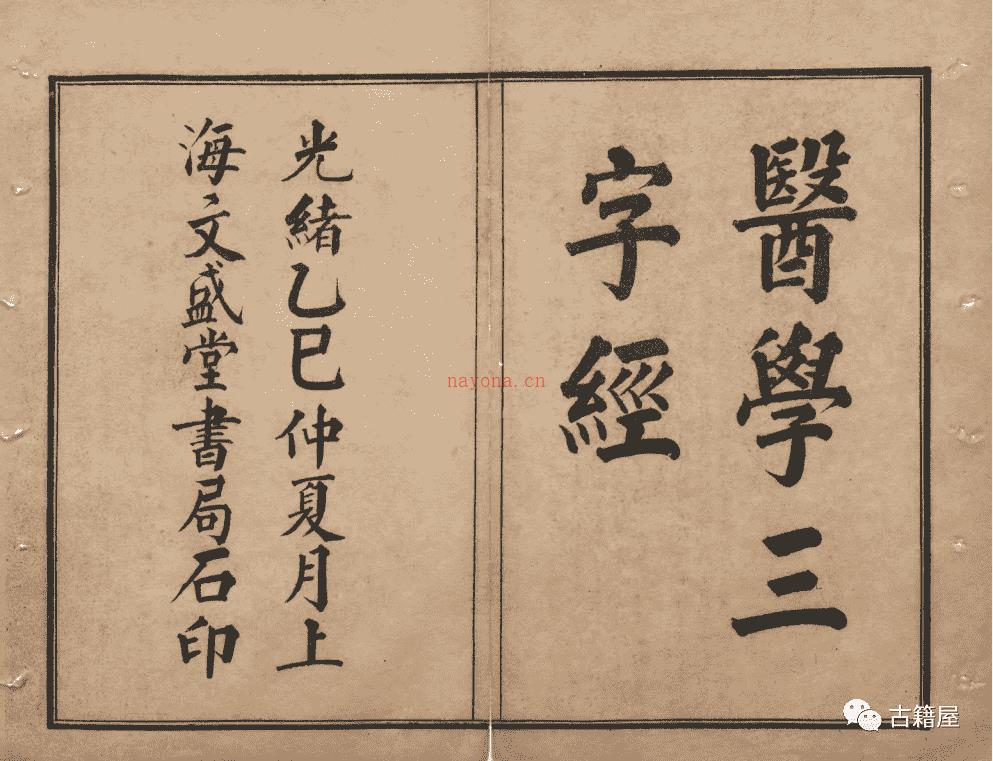 醫學三
字經
光緒乙巳仲夏月上
海文盛堂書局石印
nayona.cn
古籍屋